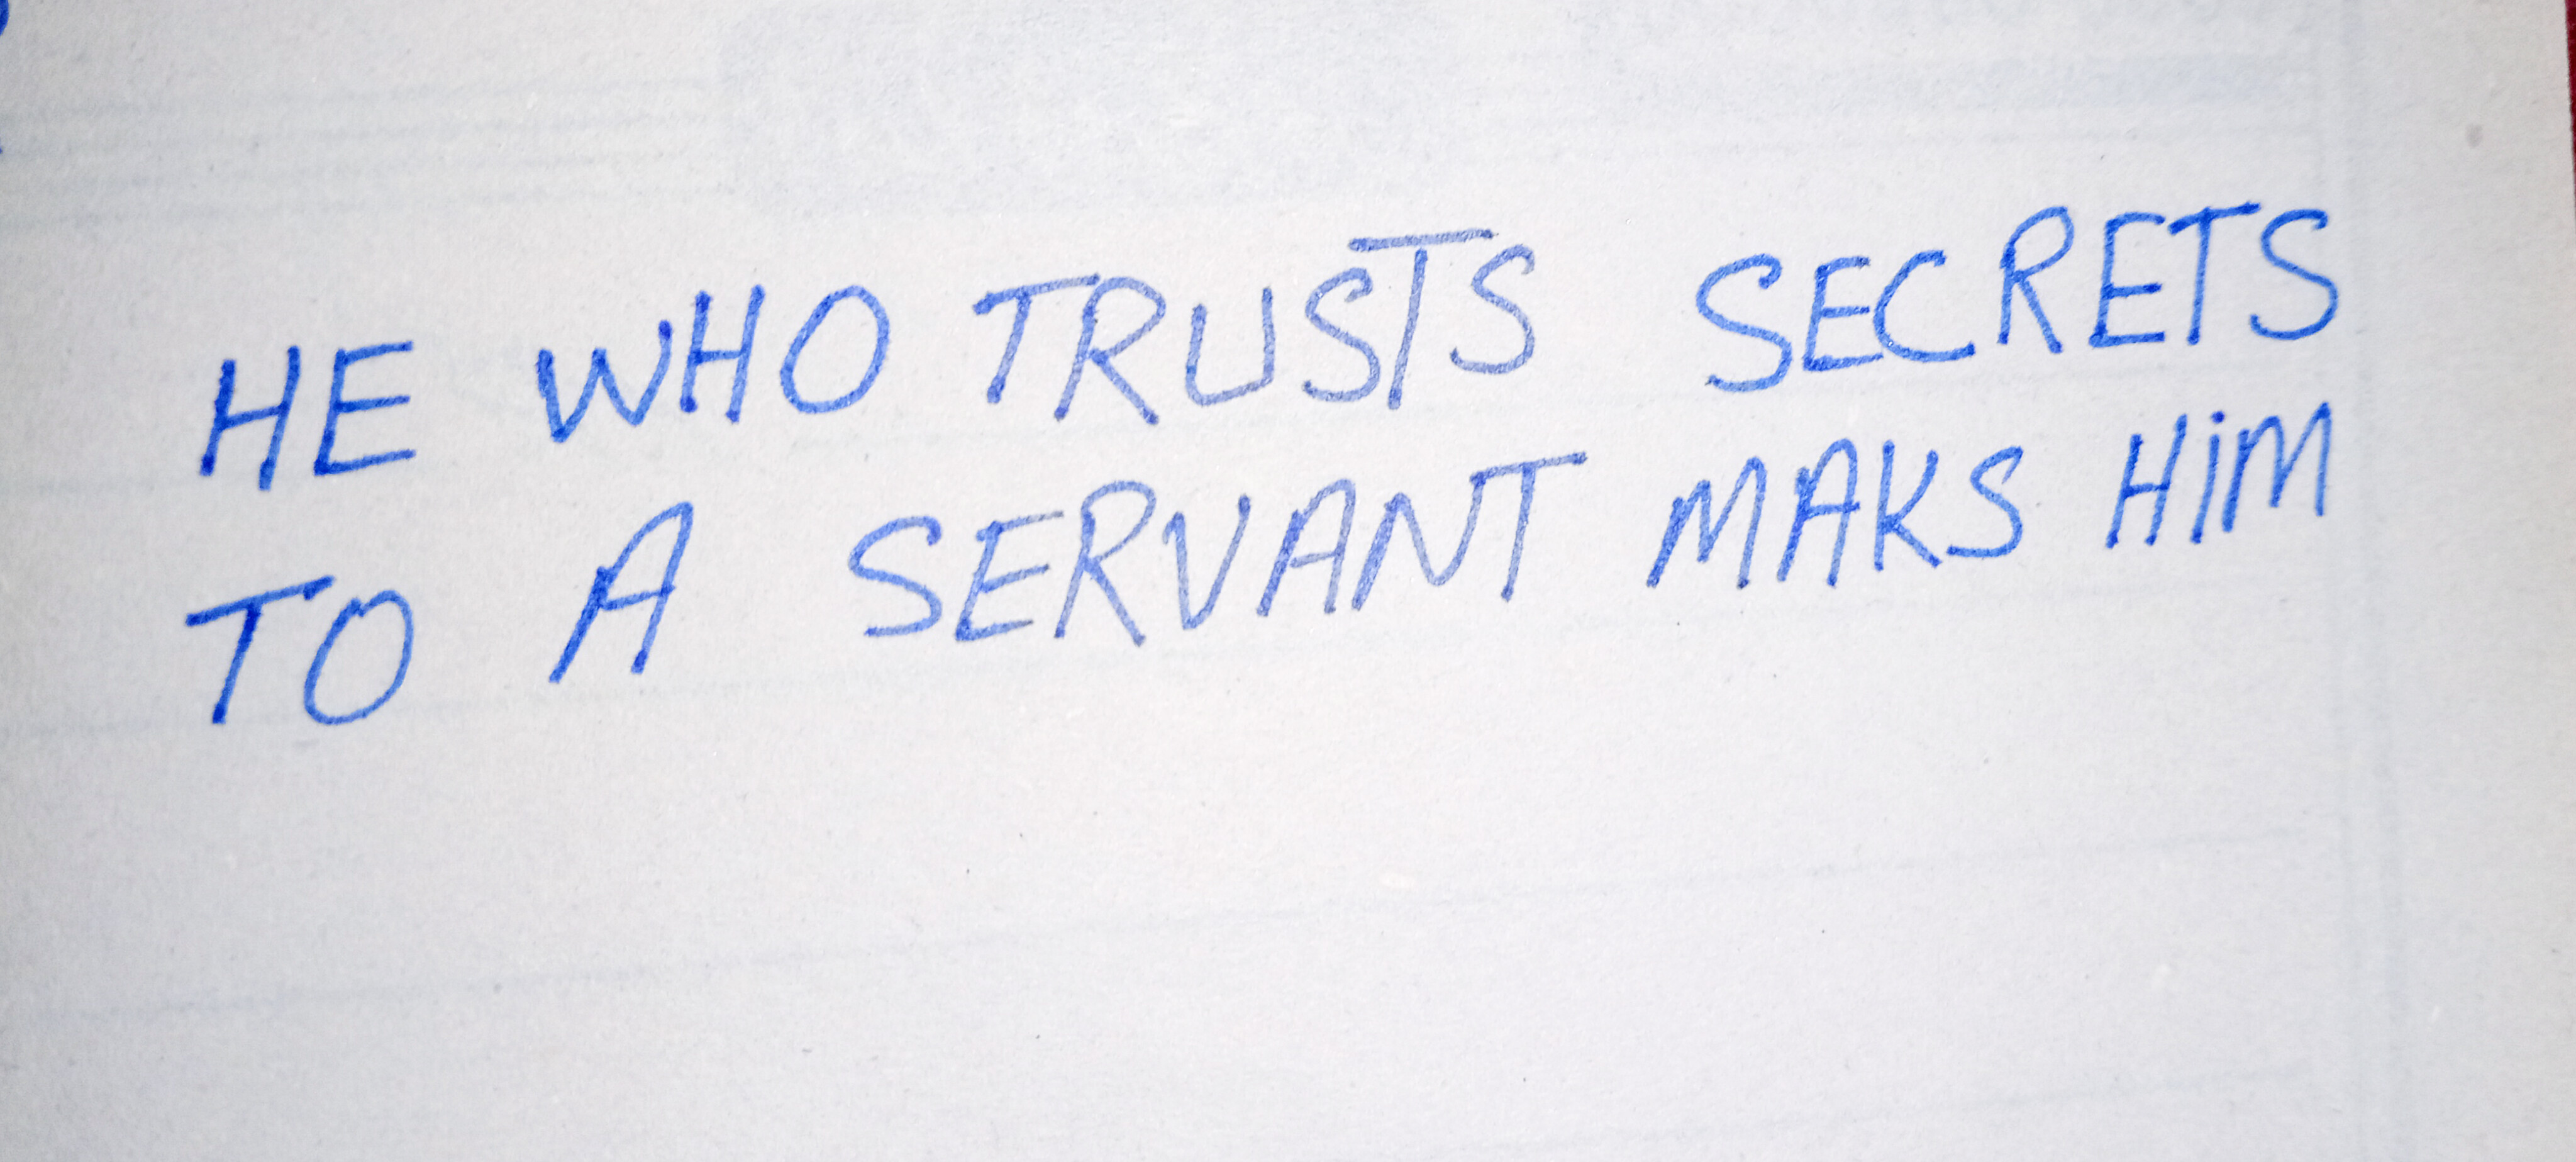 HE WHO TRUSTS SECRETS
TO A SERVANT MAKS HiM